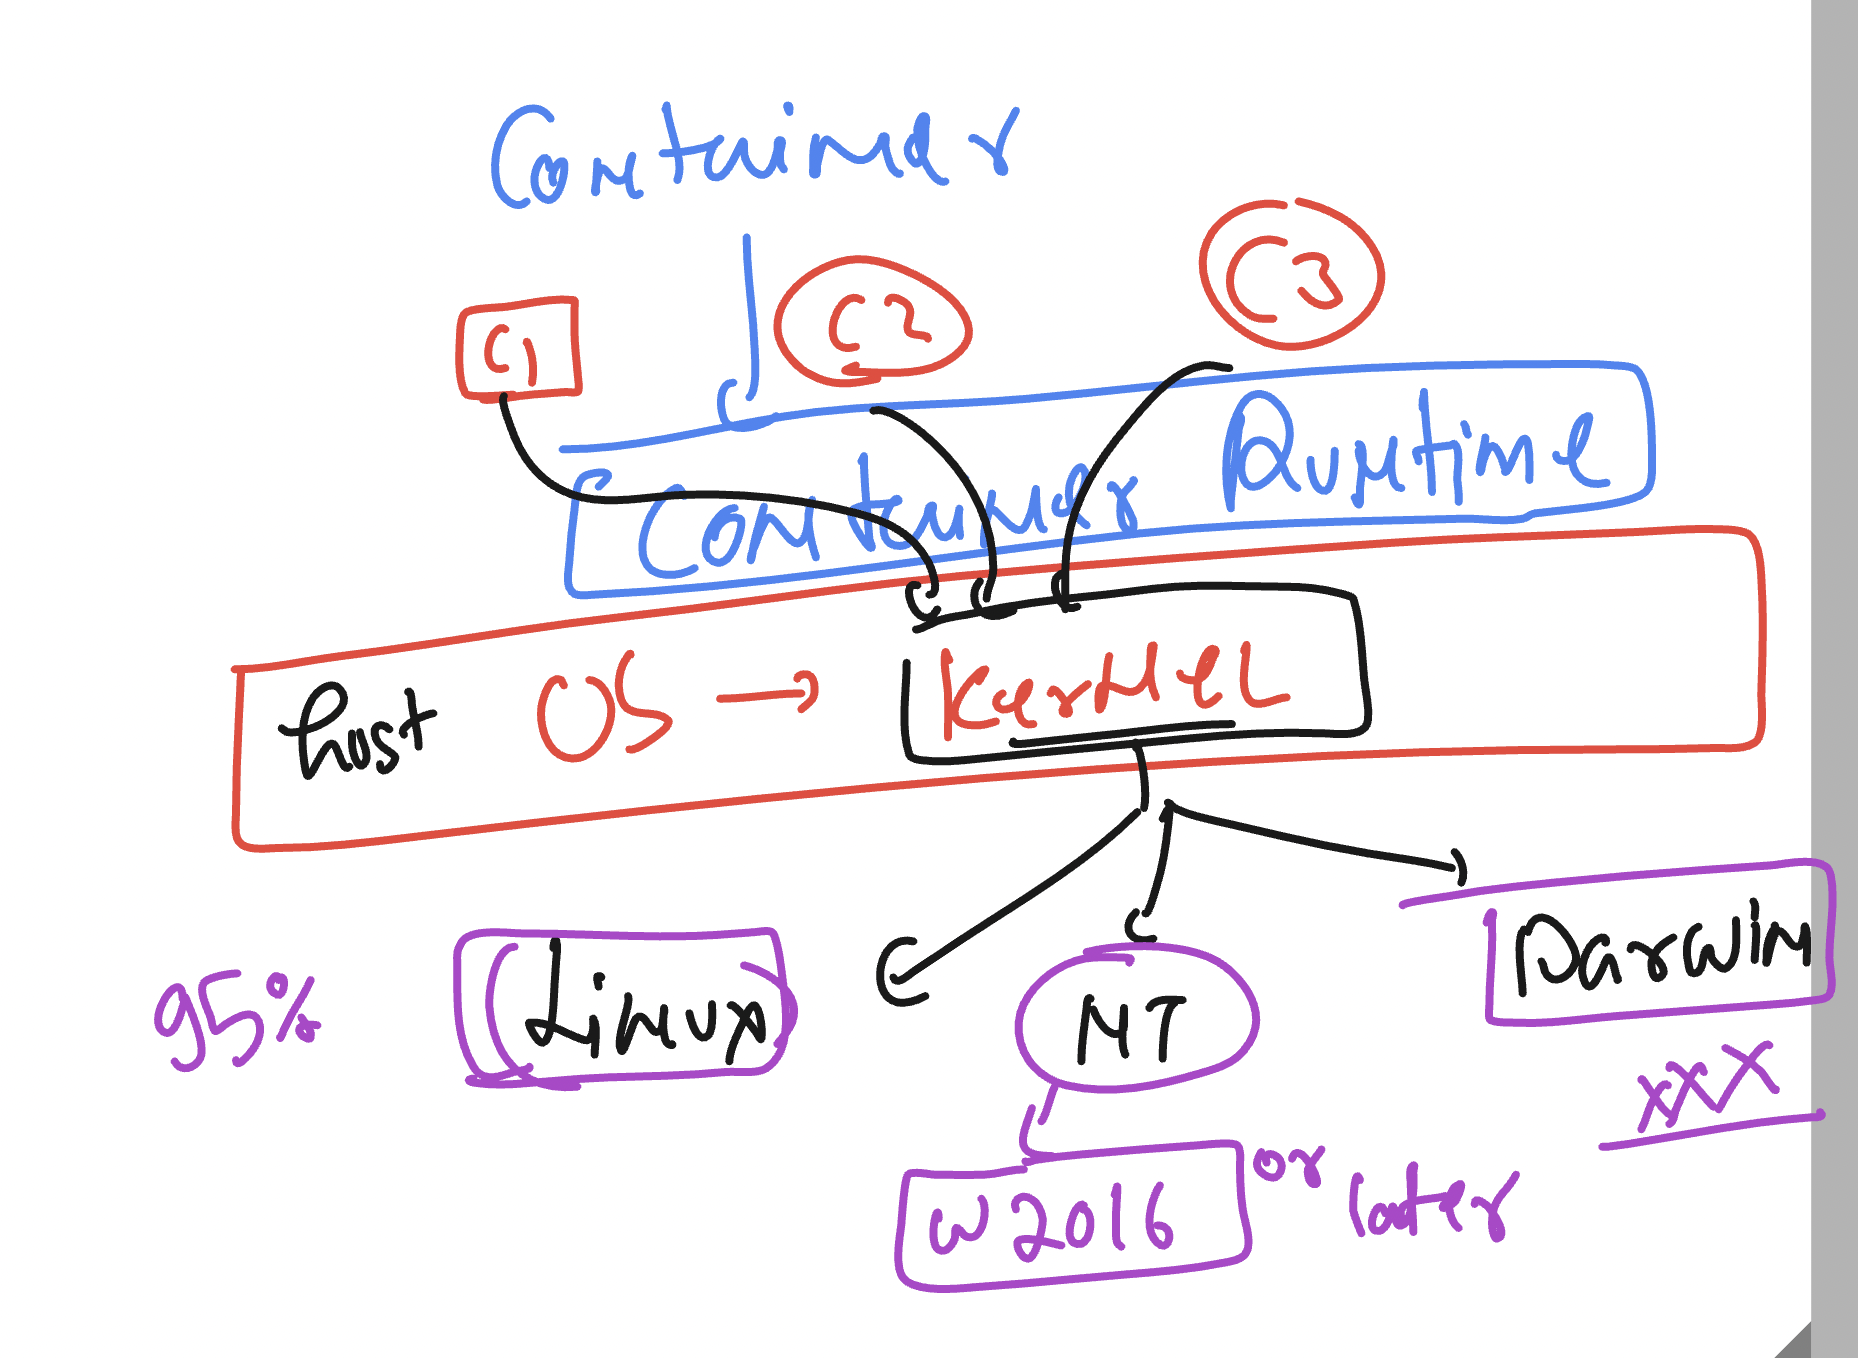 Container
C1
C2
C3
Container Runtime
host OS → Kernel
95%
Linux
NT
Darwin
XXX
W2016 or later